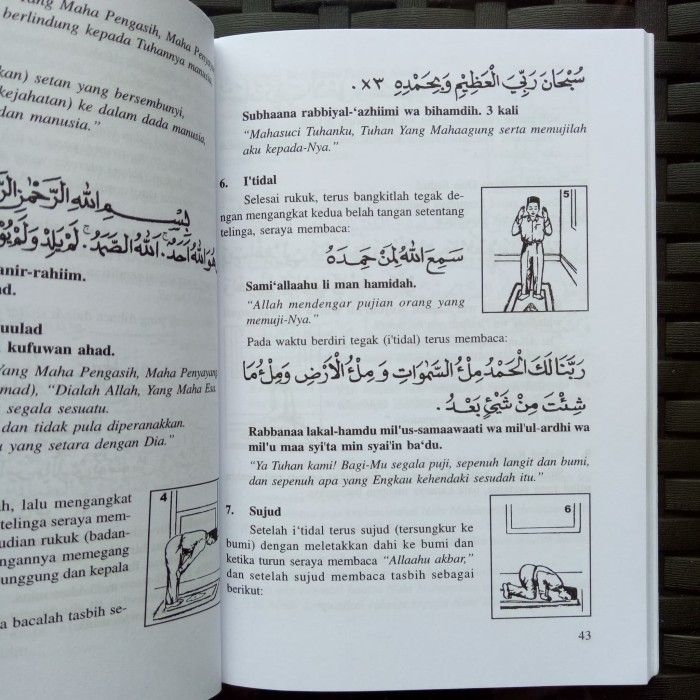 Yang Maha Pengasih, Maha Penyayang
berlindung kepada Tuhannya manusia,
kan) setan yang bersembunyi,
kejahatan) ke dalam dada manusia,
dan manusia."
بِسْمِ اللهِ الرَّحْمٰنِ
هُوَ اللهُ اَحَدٌ . اَللهُ الصَّمَدُ . لَمْ يَلِدْ وَلَمْ
anir-rahiim.
d.
uulad
kufuwan ahad.
Yang Maha Pengasih, Maha Penyayang
mad), "Dialah Allah, Yang Maha Esa.
segala sesuatu.
dan tidak pula diperanakkan.
u yang setara dengan Dia."
h, lalu mengangkat
telinga seraya mem-
udian rukuk (badan-
ngannya memegang
unggung dan kepala
a bacalah tasbih se-
4
سُبْحَانَ رَبِّيَ الْعَظِيْمِ وَبِحَمْدِهِ ×٣ .
Subhaana rabbiyal-'azhiimi wa bihamdih. 3 kali
"Mahasuci Tuhanku, Tuhan Yang Mahaagung serta memujilah
aku kepada-Nya."
6. I'tidal
Selesai rukuk, terus bangkitlah tegak de-
ngan mengangkat kedua belah tangan setentang
telinga, seraya membaca:
5
سَمِعَ اللهُ لِمَنْ حَمِدَهُ
Sami'allaahu li man hamidah.
"Allah mendengar pujian orang yang
memuji-Nya."
Pada waktu berdiri tegak (i'tidal) terus membaca:
رَبَّنَا لَكَ الْحَمْدُ مِلْءُ السَّمٰوَاتِ وَمِلْءُ الْاَرْضِ وَمِلْءُ مَا
شِئْتَ مِنْ شَيْءٍ بَعْدُ .
Rabbanaa lakal-hamdu mil'us-samaawaati wa mil'ul-ardhi wa
mil'u maa syi'ta min syai'in ba'du.
"Ya Tuhan kami! Bagi-Mu segala puji, sepenuh langit dan bumi,
dan sepenuh apa yang Engkau kehendaki sesudah itu."
7. Sujud
Setelah i'tidal terus sujud (tersungkur ke
bumi) dengan meletakkan dahi ke bumi dan
ketika turun seraya membaca "Allaahu akbar,"
dan setelah sujud membaca tasbih sebagai
berikut:
6
43